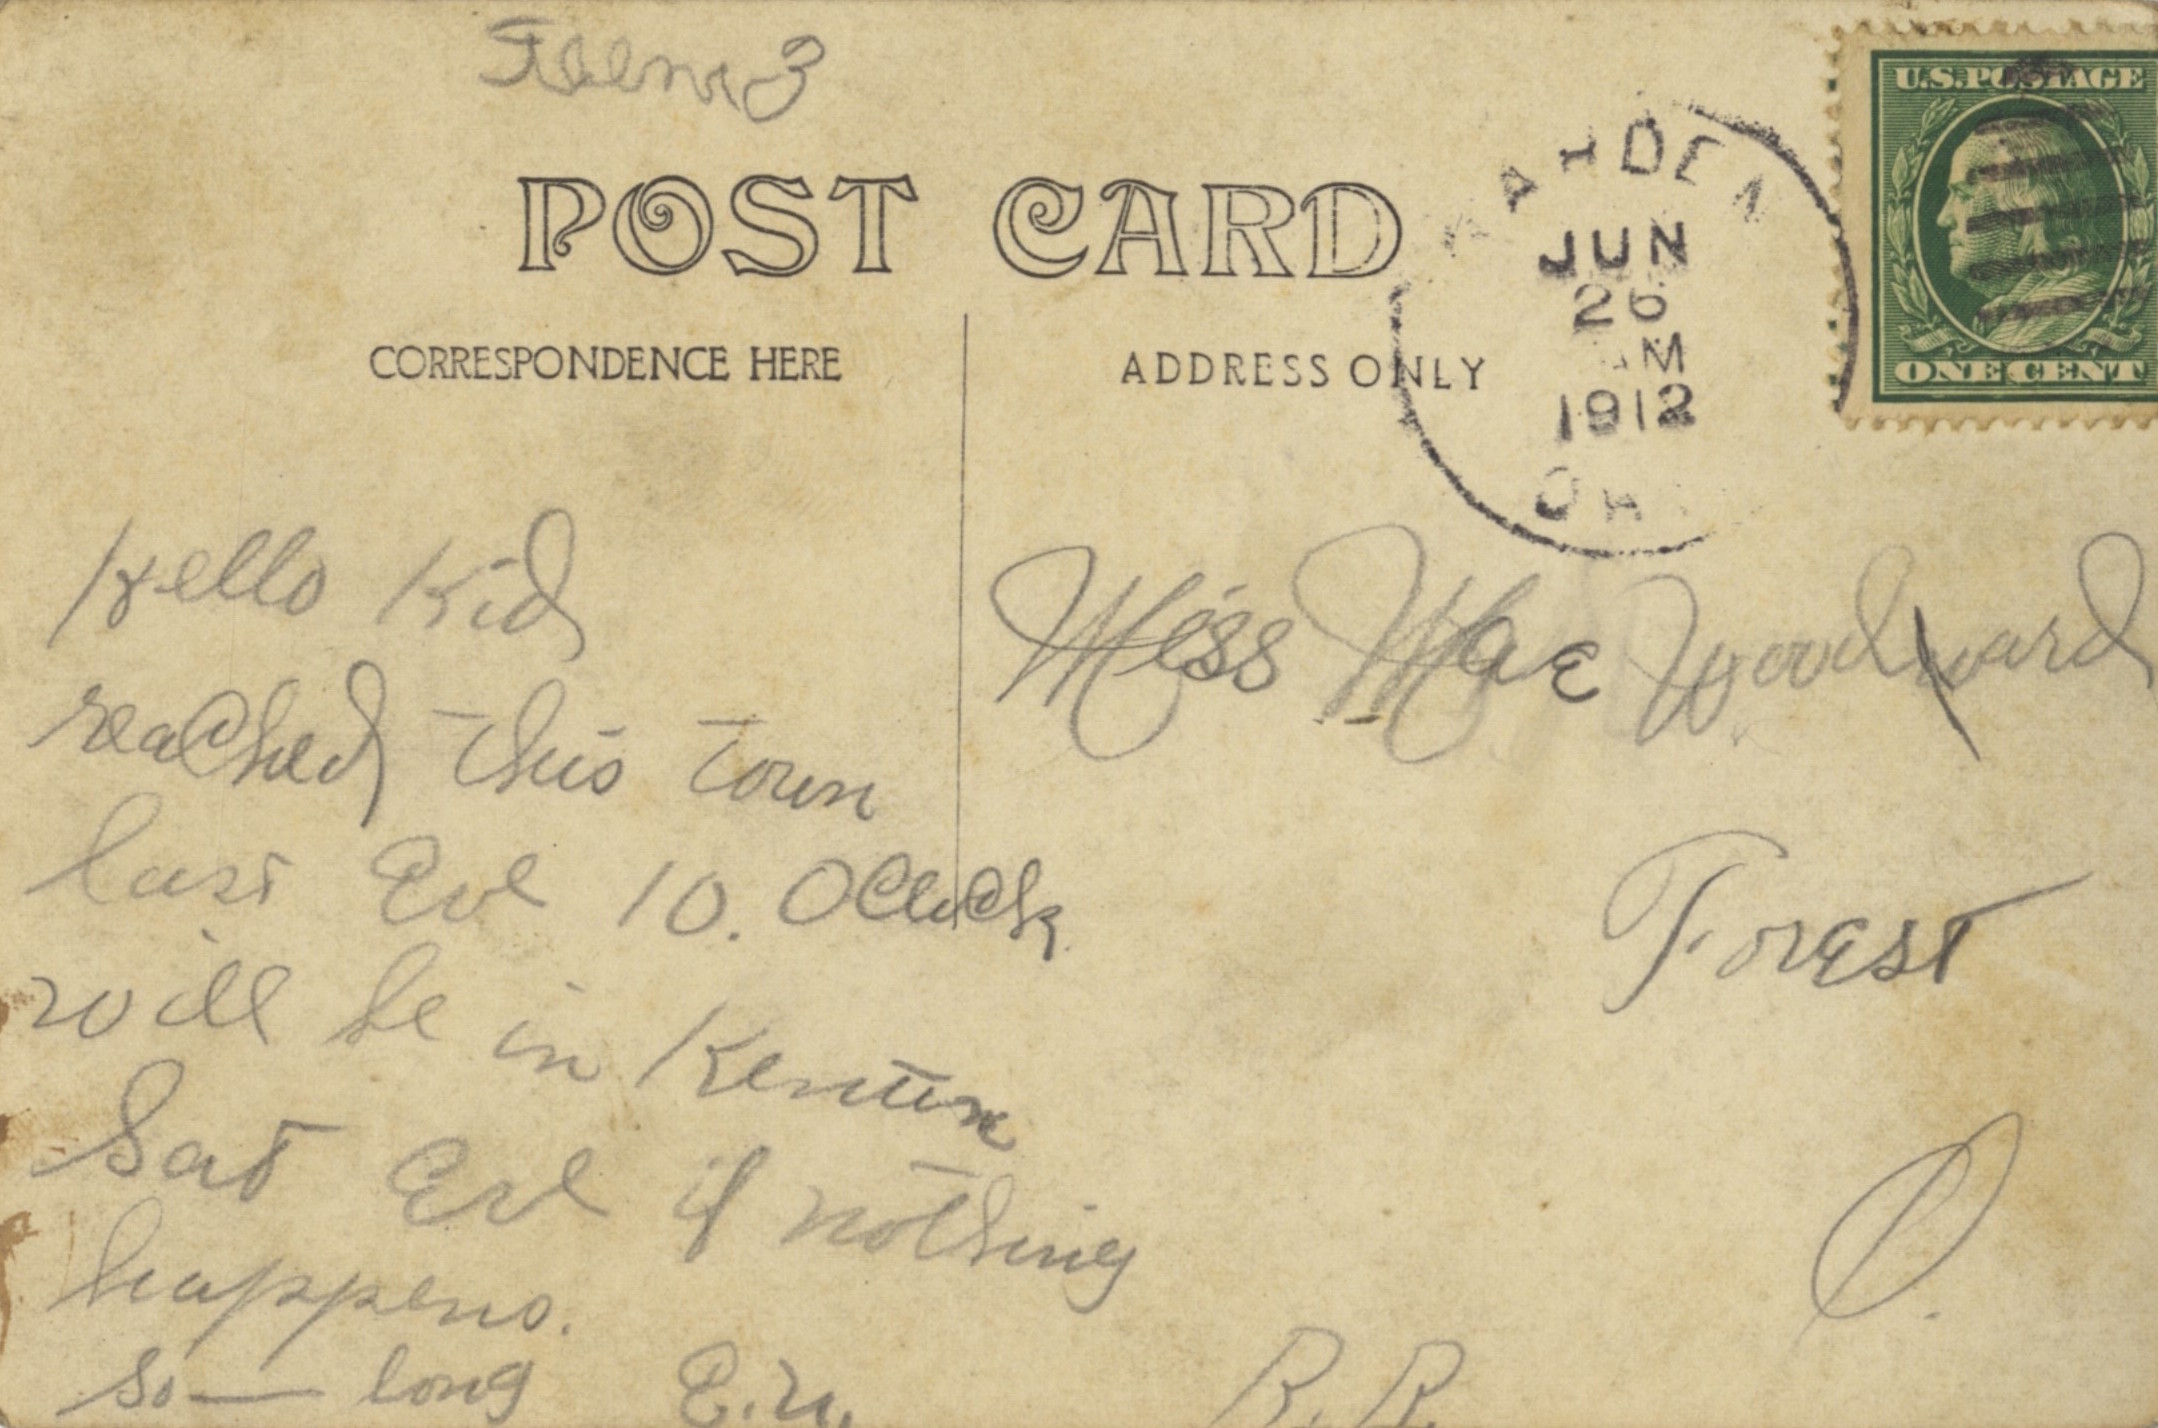 POST CARD
U.S. POSTAGE
ONE CENT
JUN
26
M
1912
CORRESPONDENCE HERE
ADDRESS ONLY
Hello Kid
reached this town
last Eve 10. Oclock
will be in Kenton
Sat Eve if nothing
happens.
so — long E.U.
Miss Mae Woodward
Forest
O.
R.R.